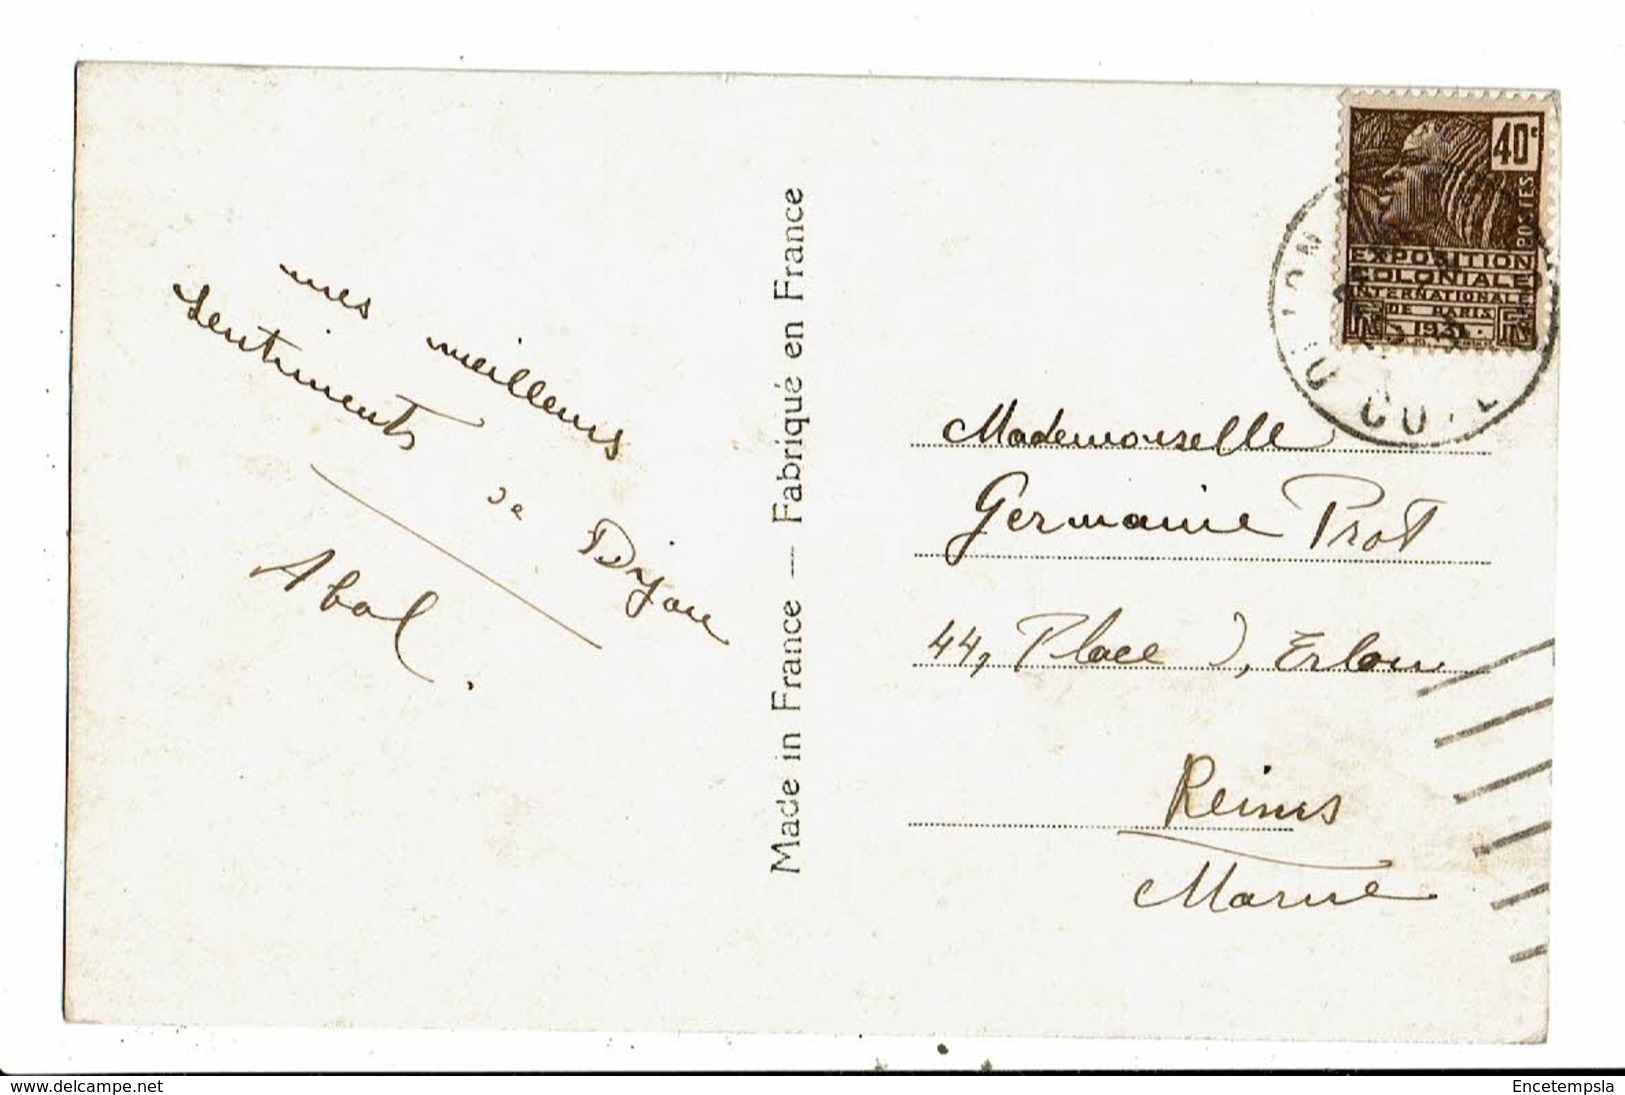 mes meilleurs
sentiments
de Dijon
Abal.
Made in France — Fabriqué en France
40c
POSTES
EXPOSITION
COLONIALE
INTERNATIONALE
DE PARIS
1931
DIJON
COTE
Mademoiselle
Germaine Prot
44, Place D, Erlon
Reims
Marne
www.delcampe.net
Encetempsla